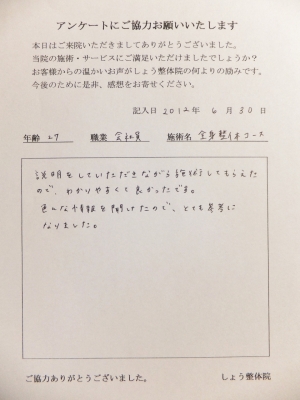 アンケートにご協力お願いいたします
本日はご来院いただきましてありがとうございました。
当院の施術・サービスにご満足いただけましたでしょうか?
お客様からの温かいお声がしょう整体院の何よりの励みです。
今後のために是非、感想をお寄せください。
記入日 2012年 6月 30日
年齢 27 職業 会社員 施術名 全身整体コース
説明をしていただきながら施術してもらえた
ので、わかりやすくて良かったです。
色んな情報を聞けたので、とても参考に
なりました。
ご協力ありがとうございました。 しょう整体院